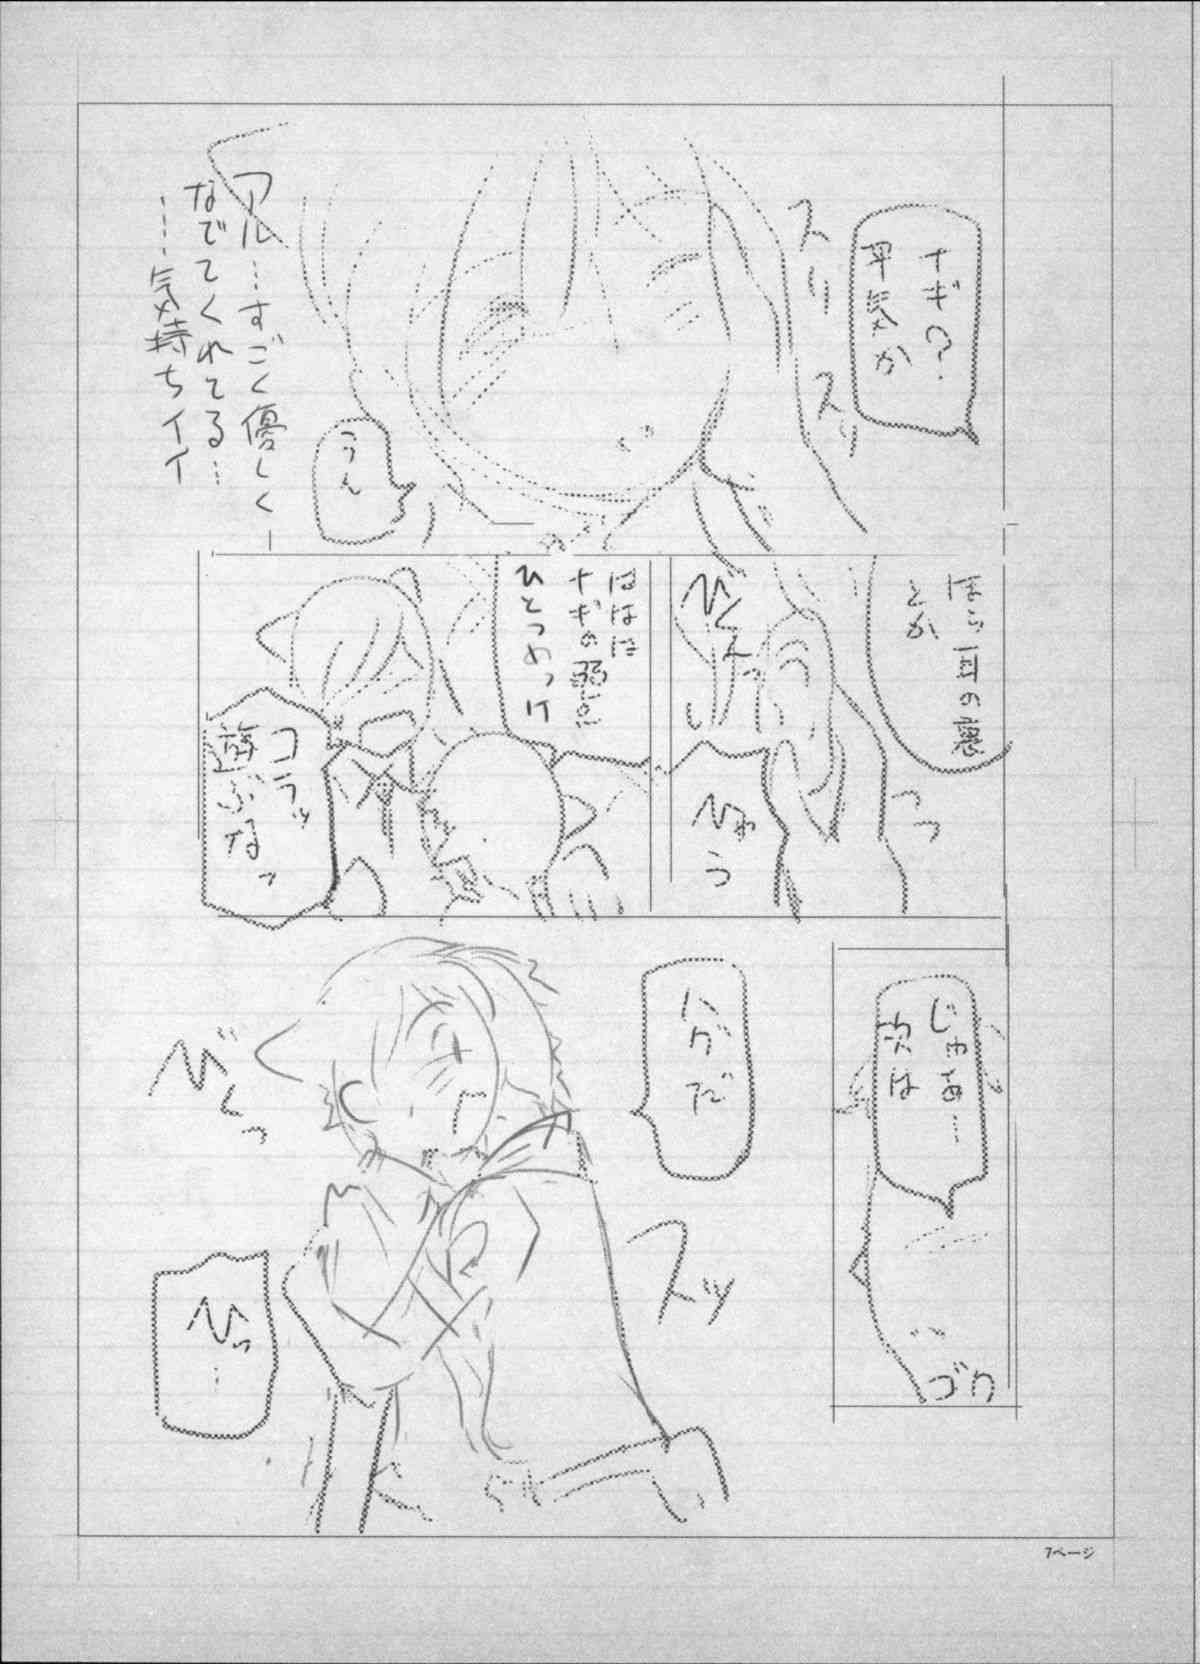 ナギ?
平気か
スリ
スリ
アル…すごく優しく
なでてくれてる…
……気持ちイイ
ううん
ほら耳の裏
とか
びくんっ
ひゃう
ははは
ナギの弱点
ひとつめっけ
コラッ
遊ぶなっ
じゃぁ…
次は
ゴク
ハグだ
スッ
びくっ
ひっ…
7ページ